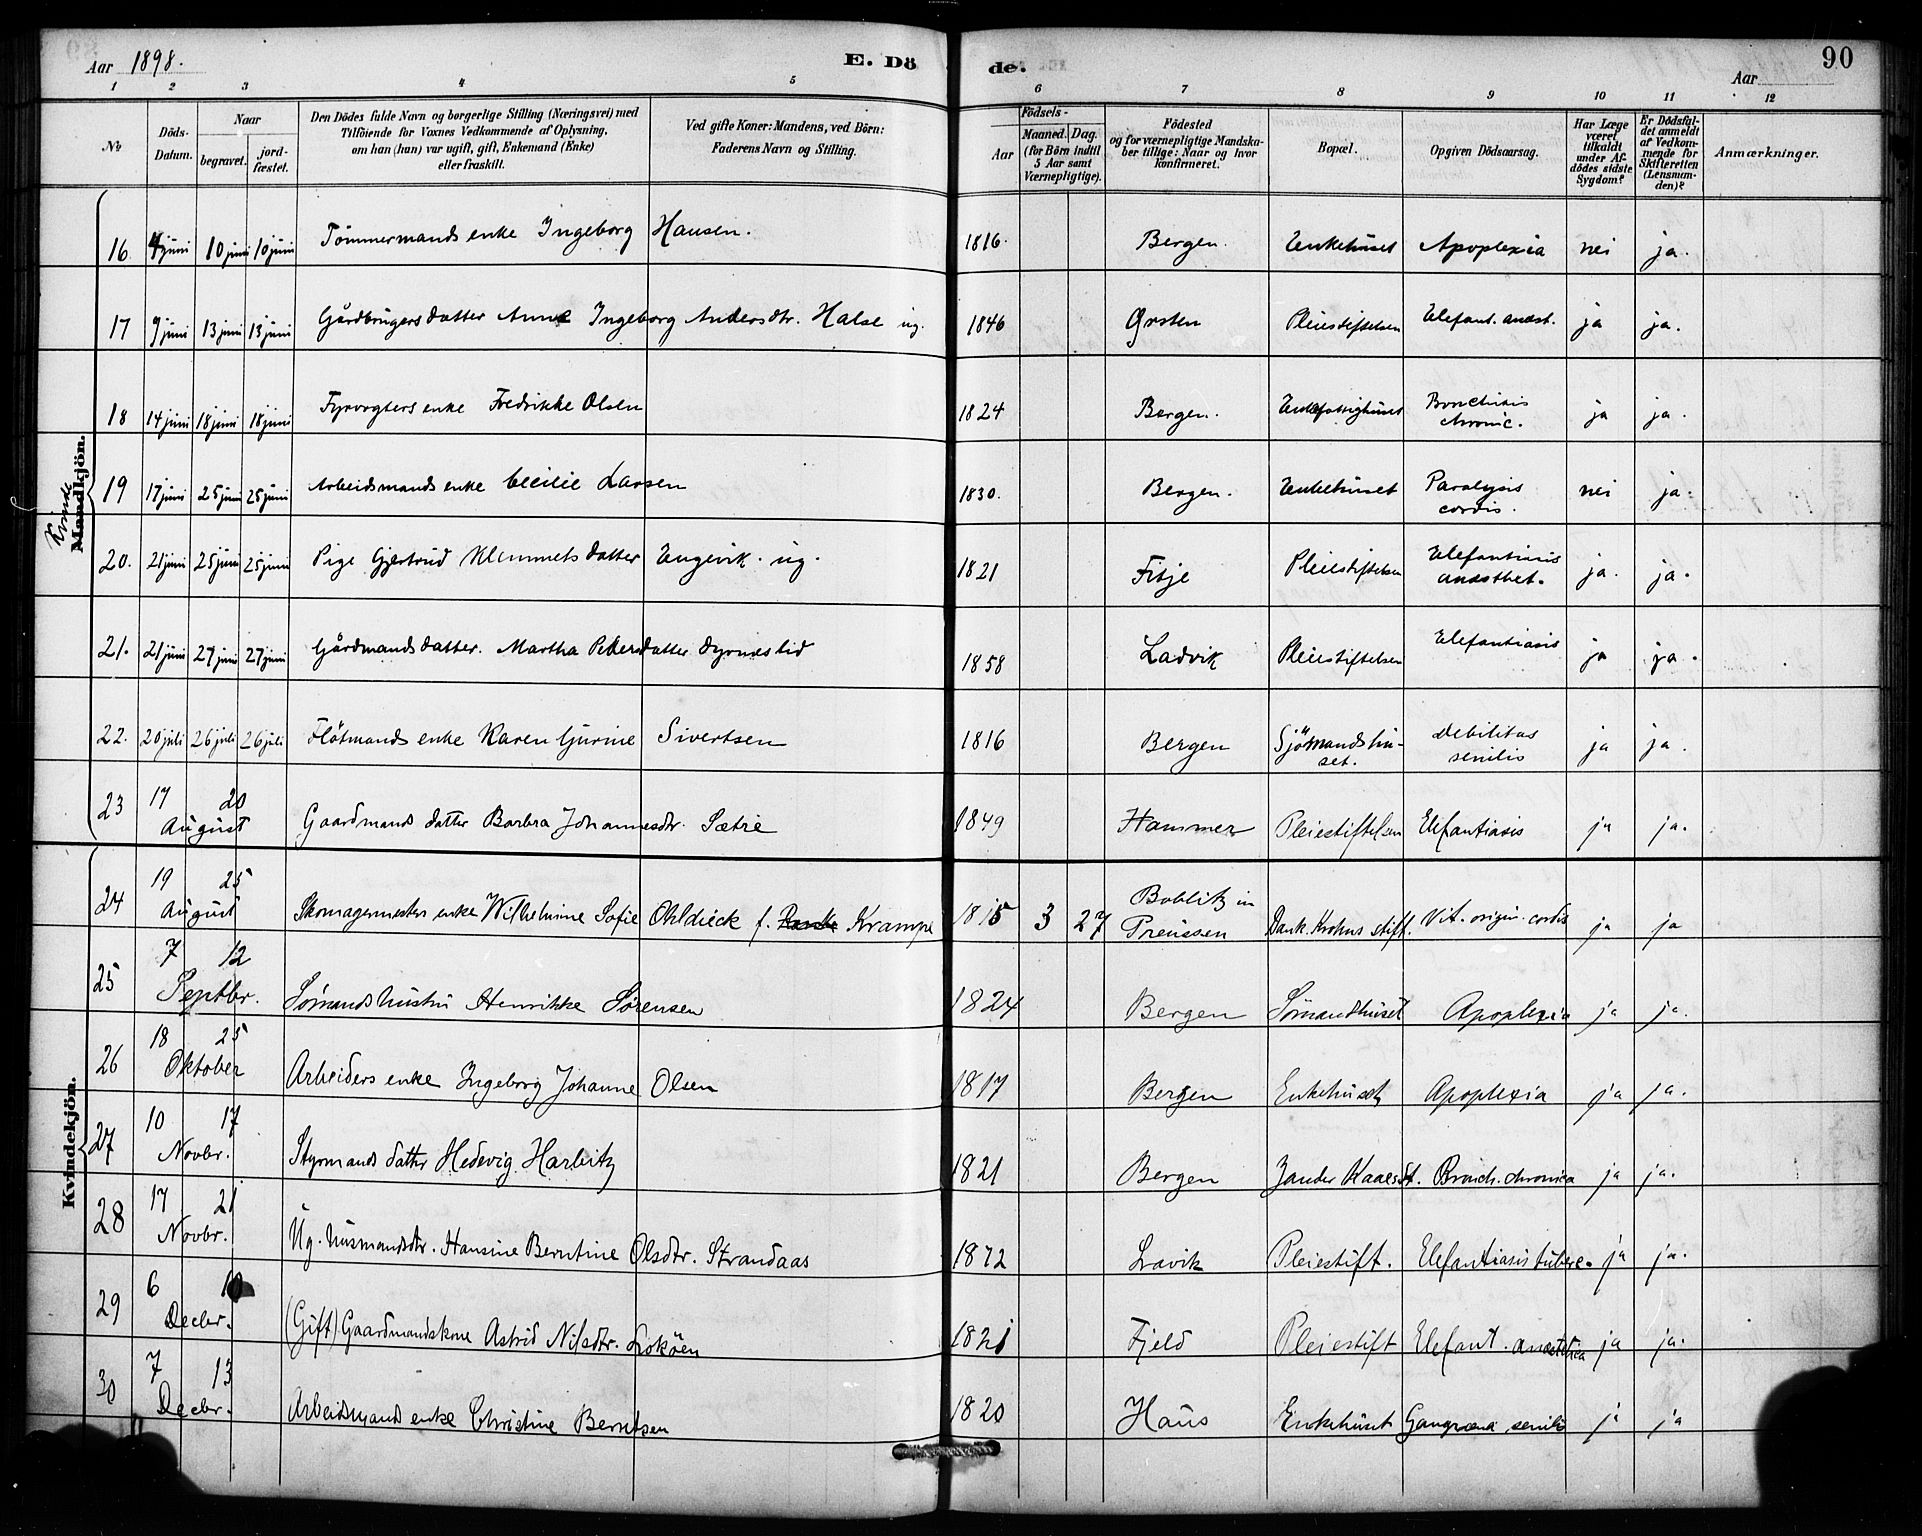 Aar 1898.
E. Dö
de.
90
Aar
1 2 3 4 5 6 7 8 9 10 11 12
No
Döds-Datum.
Naar
begravet.
jord-fæstet.
Den Dödes fulde Navn og borgerlige Stilling (Næringsvei) med
Tilföiende for Voxnes Vedkommende af Oplysning,
om han (hun) var ugift, gift, Enkemand (Enke)
eller fraskilt.
Ved gifte Koner: Mandens, ved Börn:
Faderens Navn og Stilling.
Födsels-
Aar
Maaned.
Dag.
(for Börn indtil
5 Aar samt
Værnepligtige).
Födested
og for værnepligtige Mandska-
ber tillige: Naar og hvor
konfirmeret.
Bopæl.
Opgiven Dödsaarsag.
Har Læge
været
tilkaldt
under Af-
dödes sidste
Sygdom?
Er Dödsfal-
det anmeldt
af Vedkom-
mende for
Skifteretten
(Lensman-
den)?
Anmærkninger.
Kvinde
Mandkjön.
16 4 juni 10 juni 10 juni Tömmermands enke Ingeborg Hansen. 1816. Bergen. Enkehuset Apoplexia nei ja.
17 9 juni 13 juni 13 juni Gårdbrugers datter Anne Ingeborg Andersdtr. Halse ug. 1846 Ørsten Pleiestiftelsen Elefant. anæst. ja ja.
18 14 juni 18 juni 18 juni Fyrvogters enke Fredrikke Olsen 1824 Bergen. Enkefattighuset Bronchitis chronic. ja ja.
19 17 juni 25 juni 25 juni Arbeidsmands enke Cecilie Larsen 1830. Bergen. Enkehuset Paralysis cordis. nei ja.
20. 21 juni 25 juni 25 juni Pige Gjertrud Klemmetsdatter Engevik. ug. 1821 Fitje Pleiestiftelsen Elefantiasis anæsthet. ja. ja.
21. 21 juni 27 juni 27 juni Gårdmandsdatter. Martha Petersdatter Dyrneslid 1858 Ladvik Pleiestiftelsen Elefantiasis ja ja.
22. 20 juli 26 juli 26 juli Flötmands enke Karen Gurine Sivertsen 1816 Bergen Sjömandshu-set. Debilitas senilis ja ja.
23 17 20 August Gaardmands datter Barbra Johannesdtr. Sætre 1849 Hammer Pleiestiftelsen Elefantiasis ja ja.
Kvindekjön.
24 19 25 August Skomagermesters enke Wilhelmine Sofie Ohldieck f. Krampe 1815 3 27 Boblitz in Preussen Dank. Krohns stift. Vit. origin. cordis ja ja
25 7 12 Septbr. Sømandshustru Henrikke Sørensen 1824 Bergen Sømandhuset Apoplexia ja ja.
26 18 25 Oktober Arbeiders enke Ingeborg Johanne Olsen 1817 Bergen Enkehuset Apoplexia ja ja.
27 10 17 Novbr. Styrmands datter Hedevig Harbitz 1821 Bergen Zander Kaaes St. Bronch. chronica ja ja.
28 17 21 Novbr. Ug. husmandsdtr. Hansine Berntine Olsdtr. Strandaas 1872 Lavik Pleiestift. Elefantiasis tuberc. ja ja.
29 6 10 Decbr. (Gift) Gaardmandskone Astrid Nilsdtr. Lokøen 1821 Fjeld Pleiestift Elefant. anæstetica ja ja.
30 7 13 Decbr. Arbeidsmand enke Christine Berntsen 1820 Haus Enkehuset Gangræna senilis ja ja